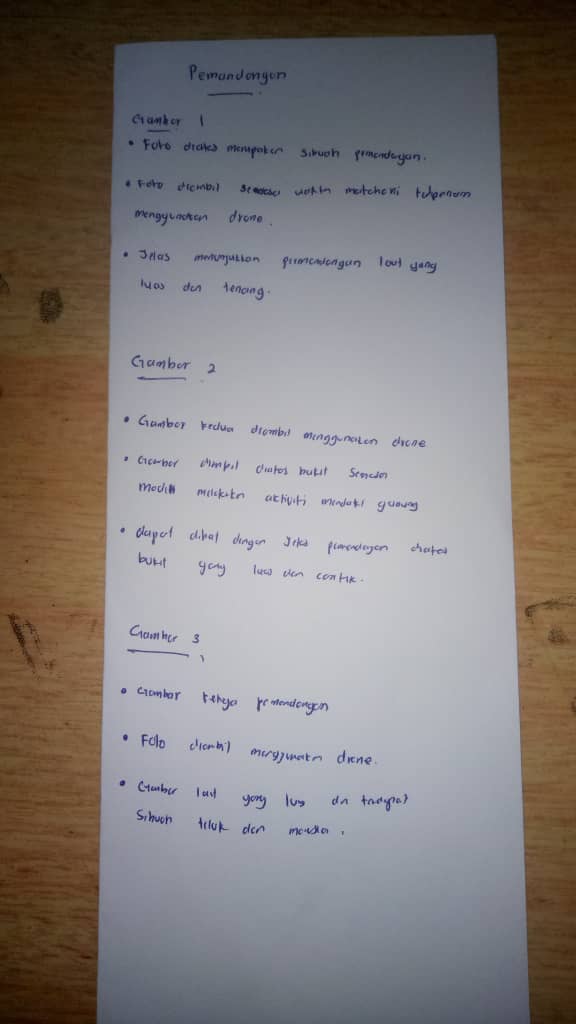 Pemandangan
Gambar 1
• Foto diatas merupakan sibuah pemandagan.
• Foto diambil semasa waktu matahari
menggunakan drone.
• Jelas menunjukkan pemandangan laut yang
luas dan tenang.
Gambar 2
• Gambar kedua diambil menggunakan drone
• Gambar diatas bukit
aktiviti mendaki gunung
• dapat dihat dengan jelas pemandagan diatas
bukit yang luas dan cantik.
Gambar 3
• Gambar pemandangan
• Foto diambil menggunakan drone.
• Gambar laut yang luas
Sibuah teluk dan